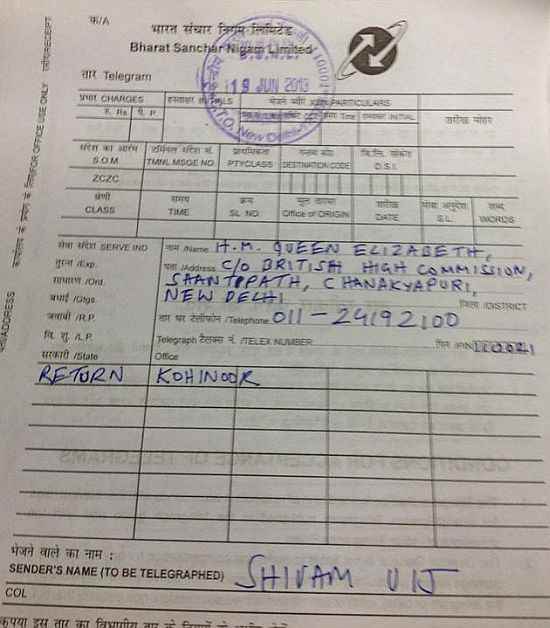 फ/A
भारत संचार निगम लिमिटेड
Bharat Sanchar Nigam Limited
B.S.N.L.
तार Telegram
19 JUN 2013
C.T.O. New Delhi
प्रभार CHARGES
PARTICULARS
रु. Rs. पै. P.
Time
INITIAL
तारीख मोहर
संदेश का आरंभ
S.O.M
टर्मिनल संदेश नं.
TMNL MSGE NO.
प्राथमिकता
PTYCLASS
गन्तव्य कोड
DESTINATION CODE
D.S.I.
ZCZC
श्रेणी
CLASS
समय
TIME
क्रम
SL NO.
मूल तारघर
Office of ORIGIN
तारीख
DATE
भाषा अनुदेश
S.L.
शब्द
WORDS
सेवा संदेश SERVE IND
नाम /Name H.M. QUEEN ELIZABETH,
तुरन्त /Exp.
पता /Address C/O BRITISH HIGH COMMISSION,
साधारण /Ord.
SHANTIPATH, CHANAKYAPURI,
बधाई /Gtgs.
NEW DELHI
जिला /DISTRICT
जवाबी /R.P.
तार घर टेलीफोन /Telephone 011-24192100
/L.P.
Telegraph टैलेक्स नं. /TELEX NUMBER
पिन /PIN 110021
सरकारी /State
Office
RETURN KOHINOOR
भेजने वाले का नाम :
SENDER'S NAME (TO BE TELEGRAPHED) SHIVAM VIJ
COL
FOR OFFICE USE ONLY
RECEIPT
ADDRESS
CONDITIONS FOR ACCEPTANCE OF TELEGRAMS